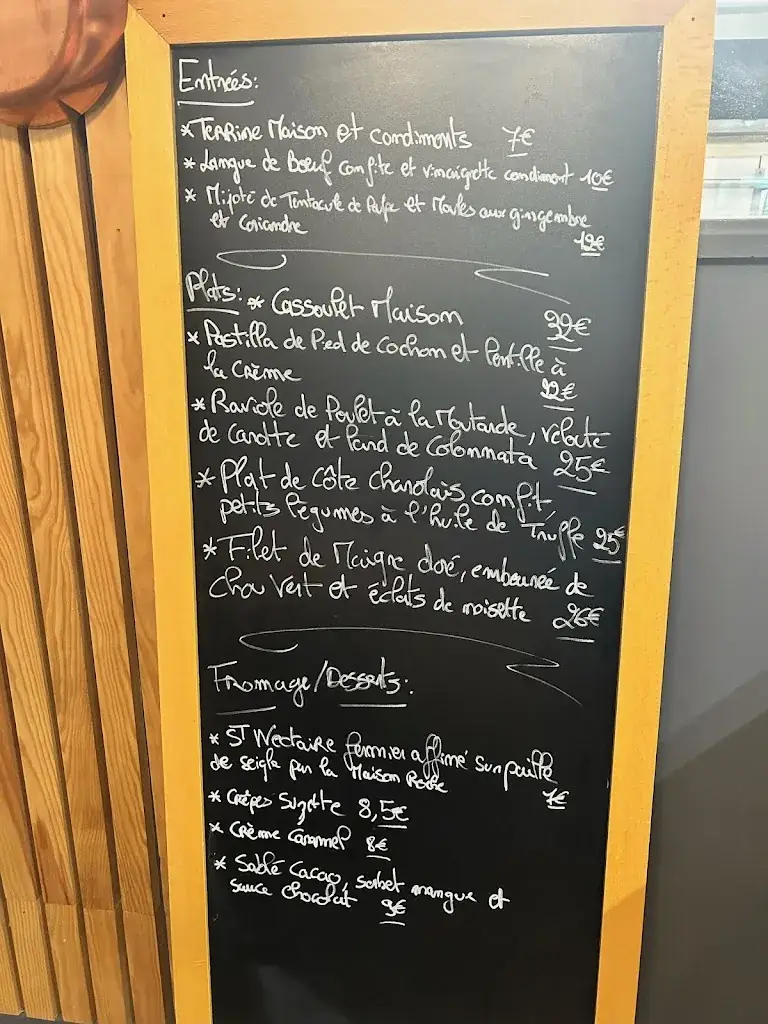 Entrées:
* Terrine Maison et condiments 7€
* Langue de Boeuf confite et vinaigrette condiment 10€
* Mijoté de Tentacule de Poulpe et Moules aux gingembre
et Coriandre 12€
Plats: * Cassoulet Maison 32€
* Pastilla de Pied de Cochon et lentille à
la Crème 22€
* Raviole de Poulet à la Moutarde, velouté
de carotte et lard de Colonnata 25€
* Plat de côte charolais confit,
petits légumes à l'huile de Truffe 25€
* Filet de Maigre doré, embeurrée de
chou vert et éclats de noisette 26€
Fromage/Desserts:
* ST Nectaire fermier affiné sur paille
de seigle par la Maison 7€
* Crêpes Suzette 8,5€
* Crème Caramel 8€
* Sablé Cacao, sorbet mangue et
sauce chocolat 9€